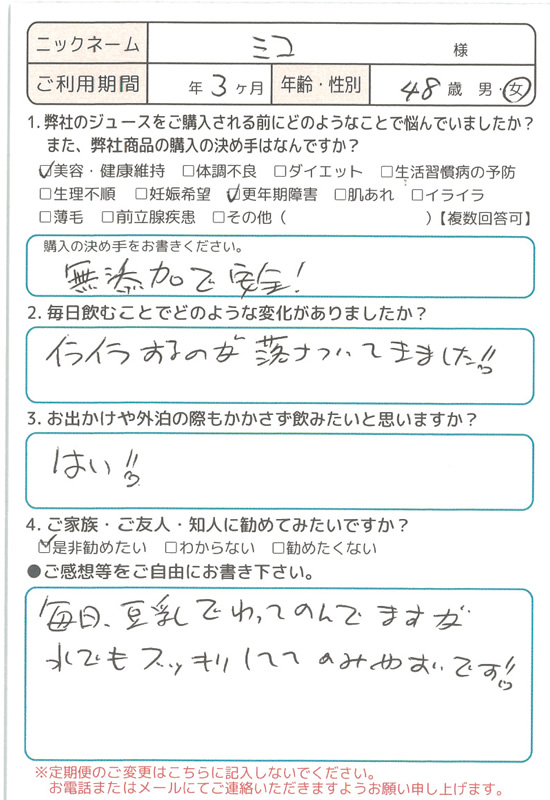 ニックネーム ミコ 様
ご利用期間 年 3 ヶ月 年齢・性別 48 歳 男・女
1. 弊社のジュースをご購入される前にどのようなことで悩んでいましたか?
また、弊社商品の購入の決め手はなんですか?
☑美容・健康維持 □体調不良 □ダイエット □生活習慣病の予防
□生理不順 □妊娠希望 ☑更年期障害 □肌あれ □イライラ
□薄毛 □前立腺疾患 □その他( )【複数回答可】
購入の決め手をお書きください。
無添加で安全!
2. 毎日飲むことでどのような変化がありましたか?
イライラするのが落ちついてきました!!
3. お出かけや外泊の際もかかさず飲みたいと思いますか?
はい!!
4. ご家族・ご友人・知人に勧めてみたいですか?
☑是非勧めたい □わからない □勧めたくない
●ご感想等をご自由にお書き下さい。
毎日、豆乳でわってのんでますが
水でもスッキリしてて のみやすいです!!
※定期便のご変更はこちらに記入しないでください。
お電話またはメールにてご連絡いただきますようお願い申し上げます。